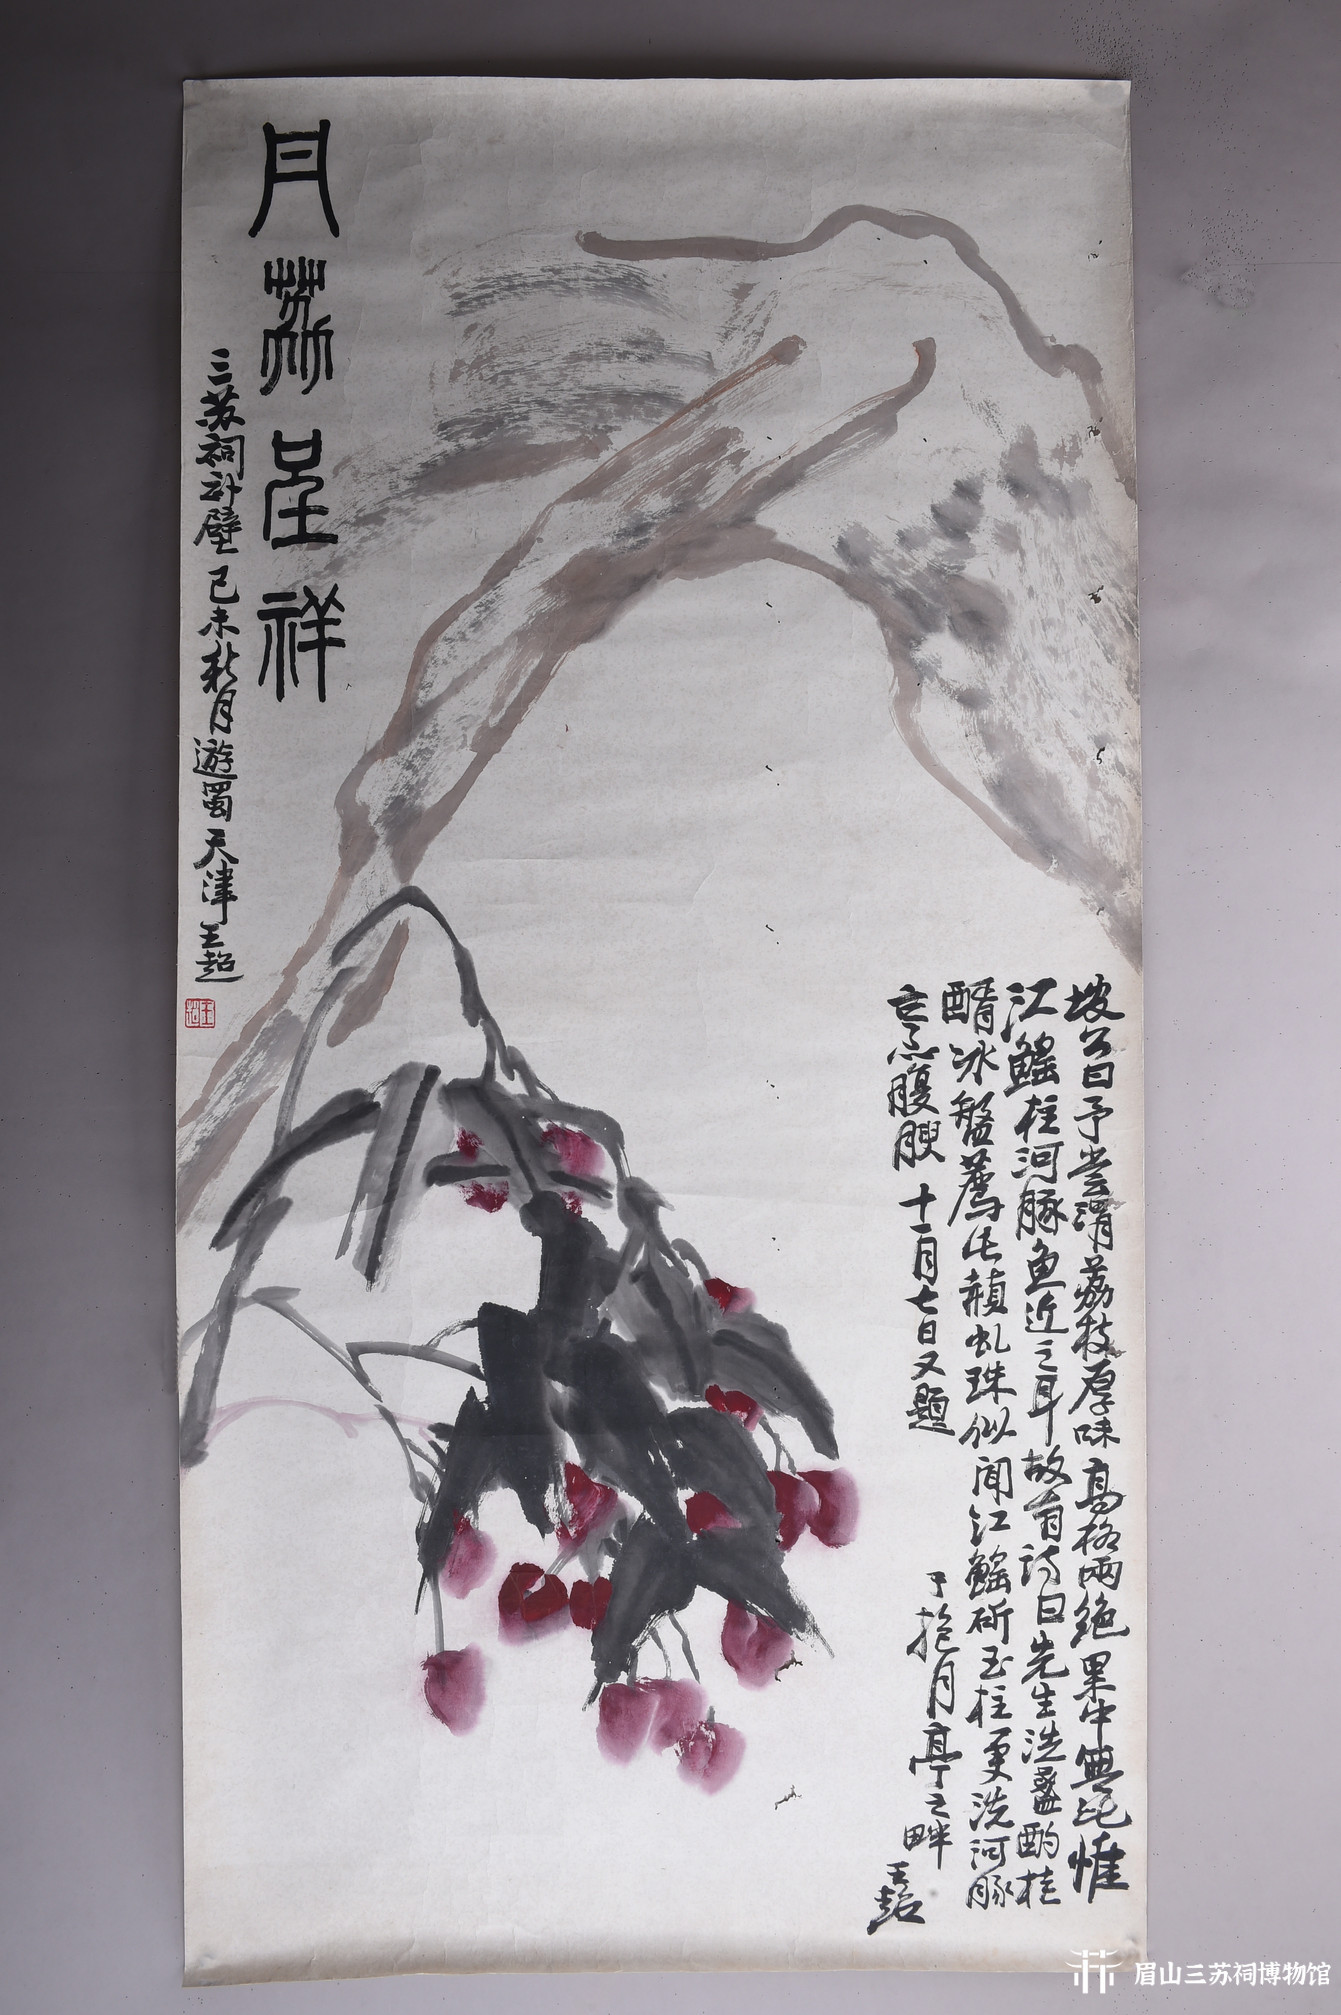 坡公曰予尝谓荔枝厚味高格两绝果中无比惟
江鳐柱河豚鱼近之耳故有诗曰先生洗盏酌桂
醑冰盘荐此赪虬珠似闻江鳐斫玉柱更洗河豚
烹腹腴 十一月七日又题
于抱月亭之畔 王超
丹荔呈祥
三苏祠补壁 己未秋月游蜀 天津 王超
眉山三苏祠博物馆